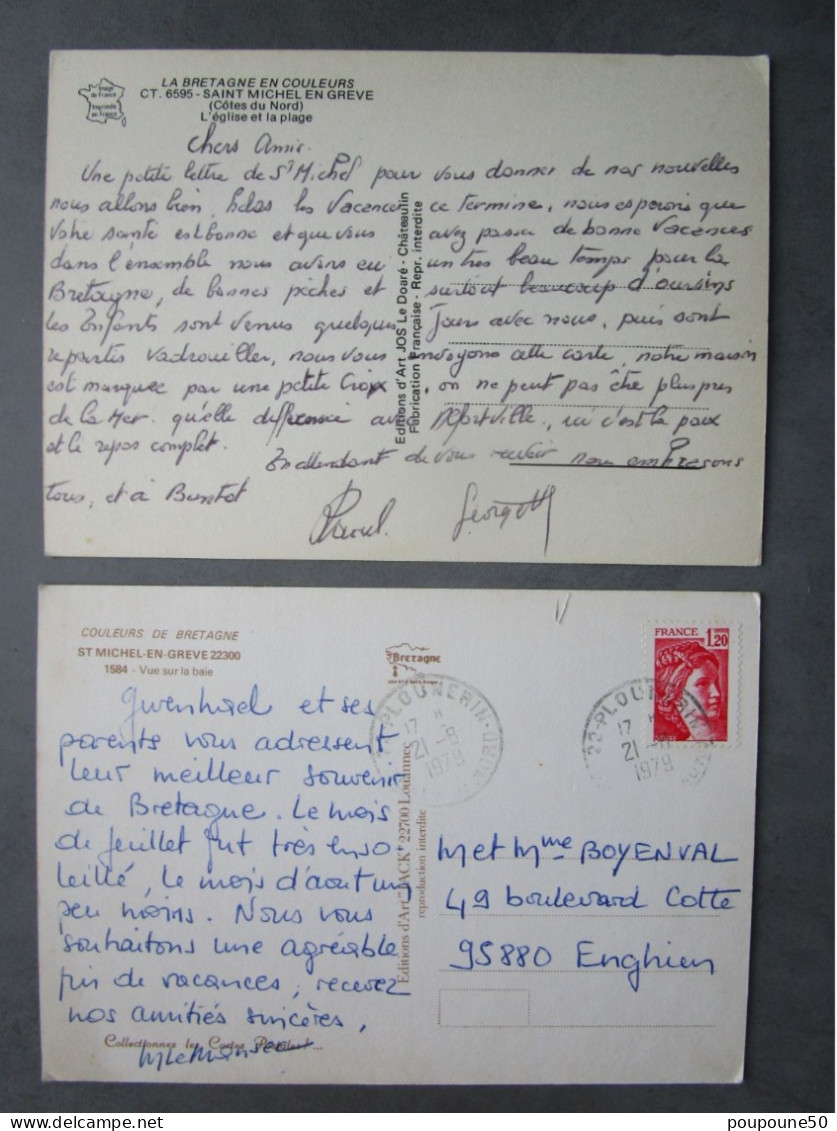 LA BRETAGNE EN COULEURS
CT. 6595 - SAINT MICHEL EN GREVE
(Côtes du Nord)
L'église et la plage
Image de France
Imprimée en France
Chers Amis
Une petite lettre de St Michel pour vous donner de nos nouvelles
nous allons bien, helas les Vacances ce termine, nous esperons que
votre santé est bonne et que vous avez passer de bonne Vacances
dans l'ensemble nous avons eu un tres beau temps pour la
Bretagne, de bonnes pêches et surtout beaucoup d'oursins
les Enfants sont venus quelques Jours avec nous, puis sont
repartis vadrouiller, nous vous envoyons cette carte, notre maison
est marquee par une petite Croix, on ne peut pas être plus pres
de la Mer. qu'elle difference avec Alfortville, ici c'est la paix
et le repos complet.
En attendant de vous revoir nous embrassons
tous, et à Bientot
Raoul. Georgette
Editions d'Art JOS Le Doaré - Châteaulin
Fabrication Française - Repr. interdite
COULEURS DE BRETAGNE
ST MICHEL-EN-GREVE 22300
1584 - Vue sur la baie
Bretagne
22-PLOUNERIN
17 H
21 -8
1979
22-PLOUNERIN
17 H
21 -8
1979
FRANCE 1,20
Gwenhael et ses
parents vous adressent
leur meilleur souvenir
de Bretagne. Le mois
de juillet fut très enso-
leillé, le mois d'aout un
peu moins. Nous vous
souhaitons une agréable
fin de vacances, recevez
nos amitiés sincères,
Collectionnez les Cartes
Editions d'Art "JACK" 22700 Louannec
reproduction interdite
M et Mme BOYENVAL
49 boulevard Cotte
95880 Enghien
poupoune50